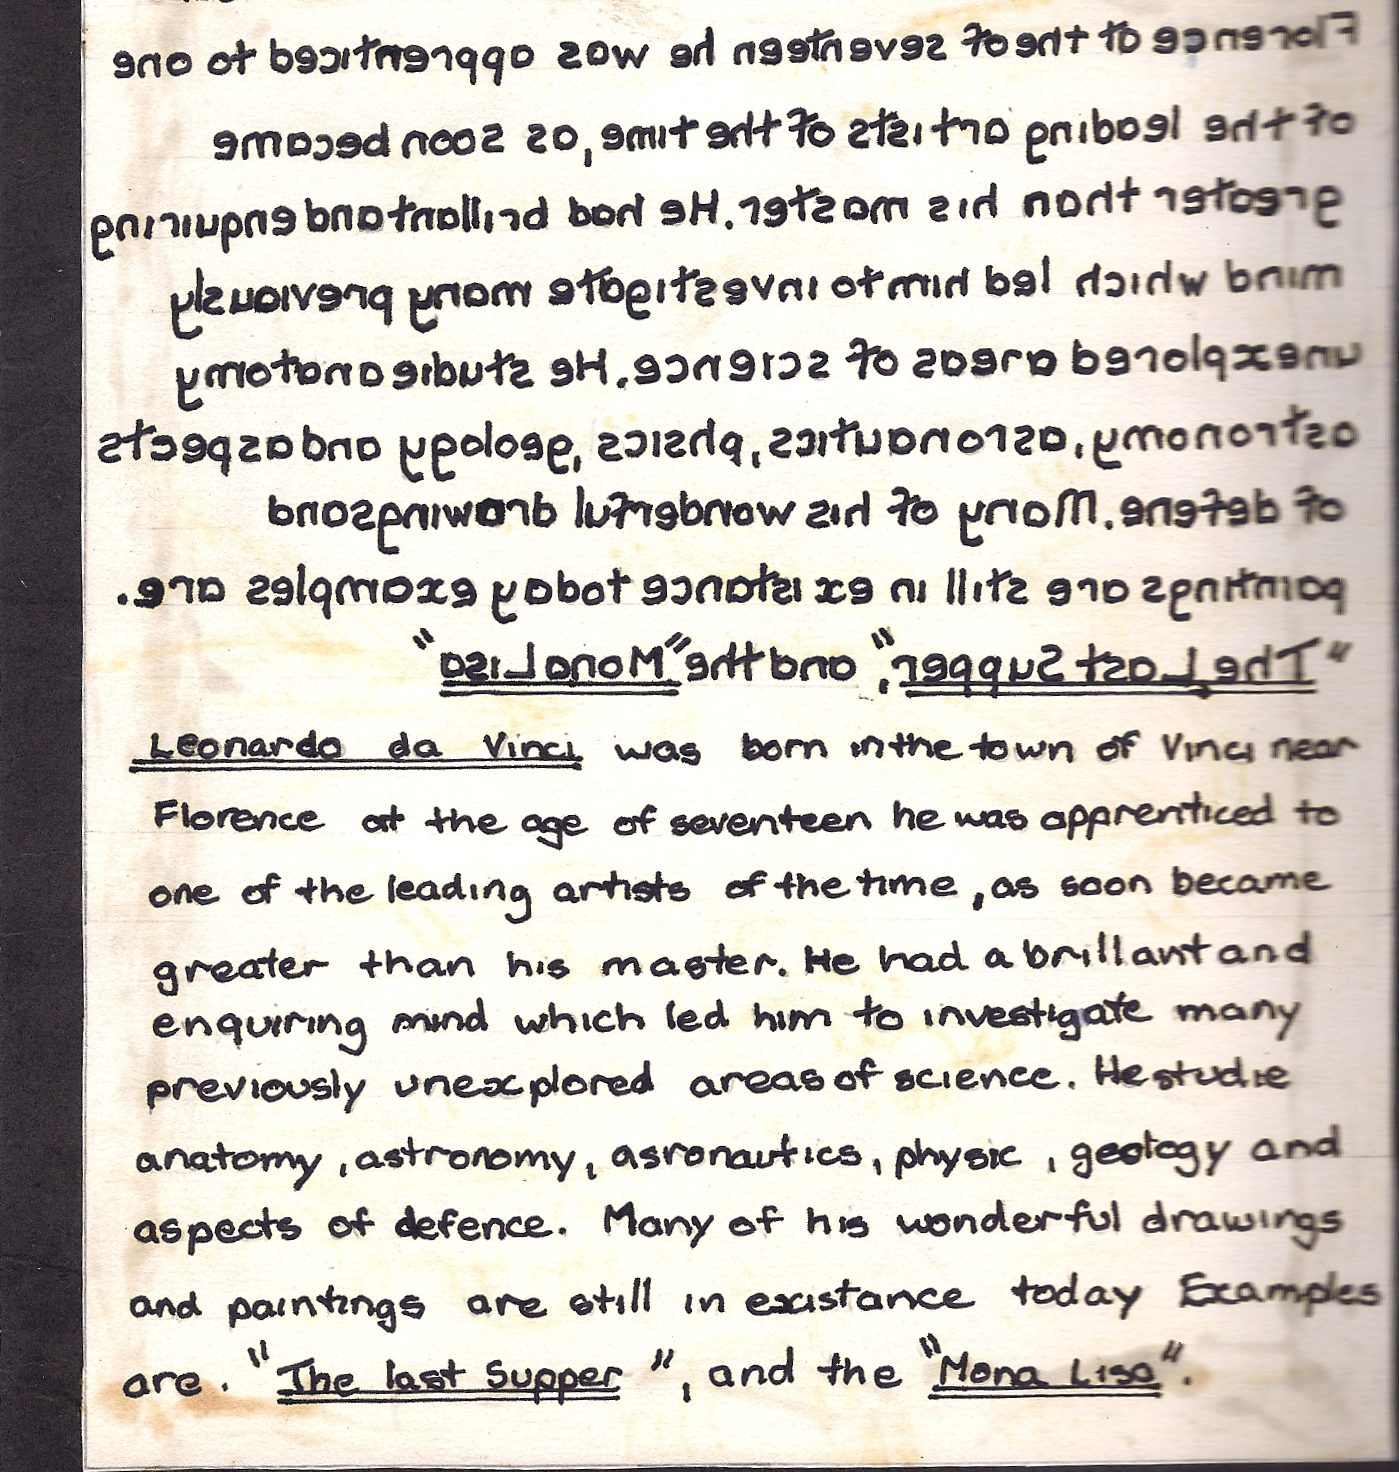 Florence at the of seventeen he was apprenticed to one
of the leading artists of the time, as soon became
greater than his master. He had brillant and enquiring
mind which led him to investigate many previously
unexplored areas of science. He studie anatomy
astronomy, asronautics, phsics, geology and aspects
of defene. Many of his wonderful drawings and
paintings are still in existance today examples are.
"The Last Supper", and the "Mona Lisa"
Leonardo da Vinci was born in the town of Vinci near
Florence at the age of seventeen he was apprenticed to
one of the leading artists of the time, as soon became
greater than his master. He had a brillant and
enquiring mind which led him to investigate many
previously unexplored areas of science. He studie
anatomy, astronomy, asronautics, physic, geology and
aspects of defence. Many of his wonderful drawings
and paintings are still in existance today Examples
are. "The last Supper", and the "Mona Lisa".